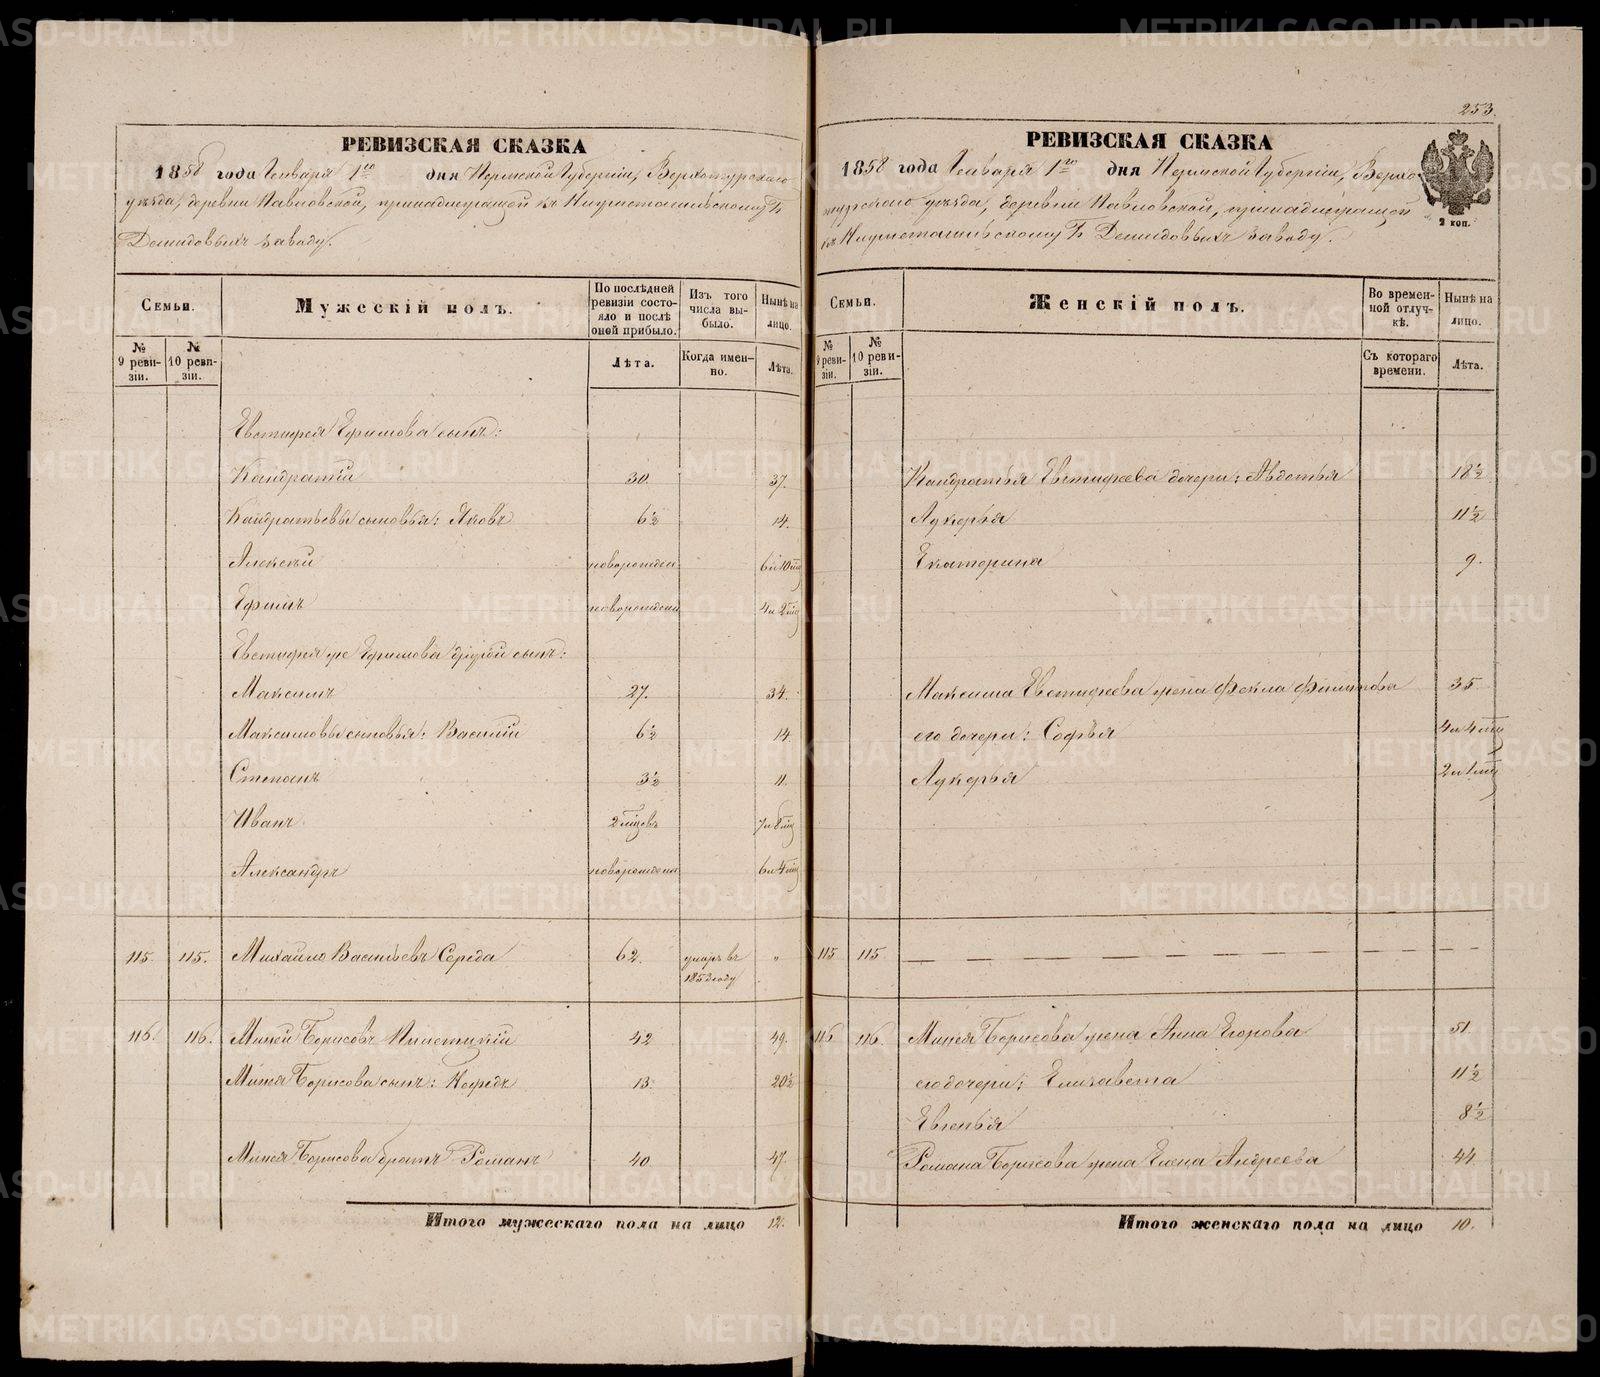 253.
РЕВИЗСКАЯ СКАЗКА
1858 года Генваря 1го дня Пермской Губерніи, Верхотурскаго
уѣзда, деревни Павловской, принадлежащей къ Нижнетагильскому Г.
Демидовыхъ заводу.
Семьи.
Мужескій полъ.
По послѣдней ревизіи состояло и послѣ оней прибыло.
Изъ того числа выбыло.
Нынѣ на лицо.
№ 9 ревизіи.
№ 10 ревизіи.
Лѣта.
Когда именно.
Лѣта.
Евстифея Ефимова сынъ:
Кандратій 30. 37.
Кандратьевы сыновья: Яковъ 6½ 14.
Алексѣй новорожден 6 и 10 мц
Ефимъ новорожден 4 и 2 мц
Евстифея же Ефимова другой сынъ:
Максимъ 27. 34.
Максимовы сыновья: Василій 6½ 14.
Степанъ 3½ 11.
Иванъ 2 мцовъ 7 и 8 мц
Александръ новорожден 6 и 4 мц
115. 115. Михайло Васильевъ Середа 62. умеръ въ 1852 году "
116. 116. Миней Борисовъ 42 49.
Минея Борисова сынъ: 13. 20½
Минея Борисова братъ Романъ 40 47.
Итого мужескаго пола на лицо 12.
РЕВИЗСКАЯ СКАЗКА
1858 года Генваря 1го дня Пермской Губерніи, Верхо-
турскаго уѣзда, деревни Павловской, принадлежащей
къ Нижнетагильскому Г. Демидовыхъ заводу.
2 коп.
Семьи.
Женскій полъ.
Во временной отлучкѣ.
Нынѣ на лицо.
№ 9 ревизіи.
№ 10 ревизіи.
Съ котораго времени.
Лѣта.
Кандратья Евстифеева дочери: Авдотья 18½
Лукерья 11½
Екатерина 9.
Максима Евстифеева жена Фекла Филипова 35
его дочери: Софья 4 и 4 мц
Лукерья 2 и 1 мц
115 115
116 116. Минея Борисова жена Анна Егорова 51.
его дочери: Елизавета 11½
Евгенья 8½
Романа Борисова жена Елена Андреева 44
Итого женскаго пола на лицо 10.
METRIKI.GASO-URAL.RU